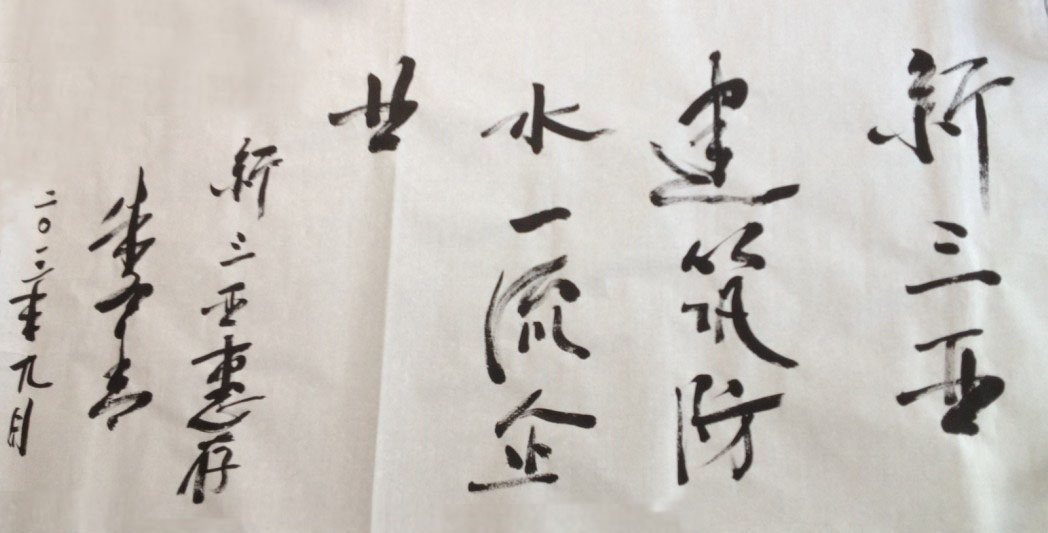 新三亚
建筑防
水一流企
业
新三亚惠存
朱冬青
二〇一二年九月